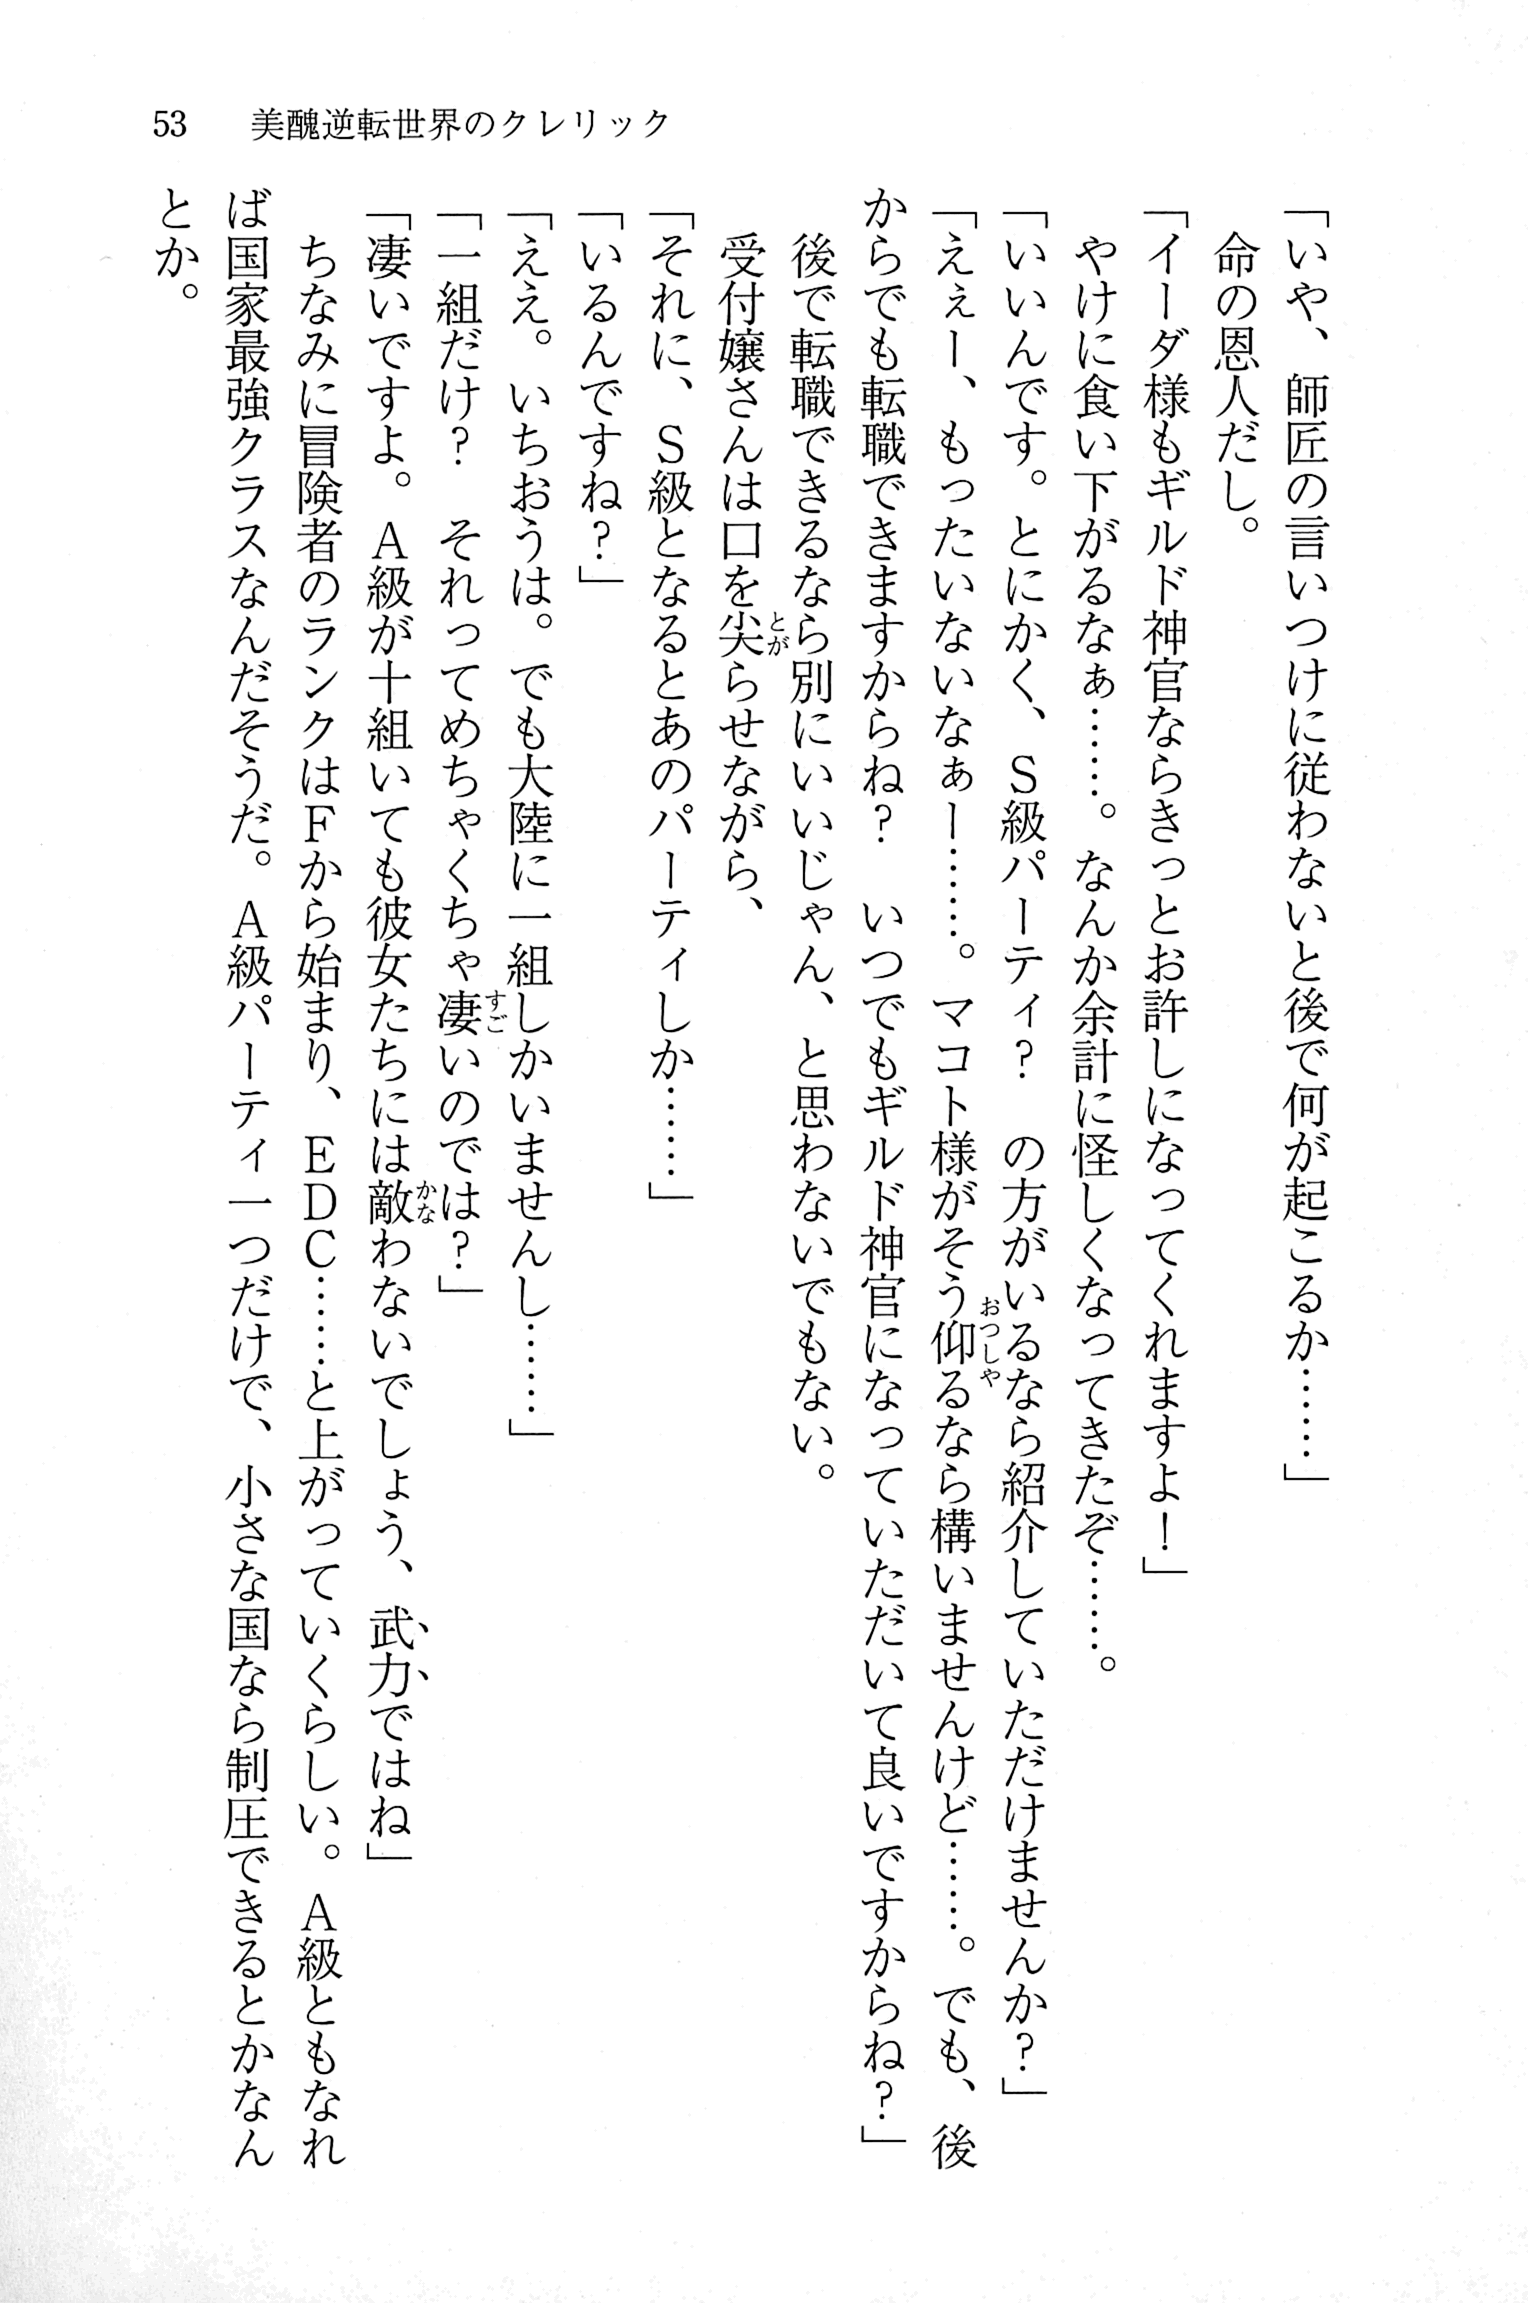 53 美醜逆転世界のクレリック
「いや、師匠の言いつけに従わないと後で何が起こるか……」
命の恩人だし。
「イーダ様もギルド神官ならきっとお許しになってくれますよ！」
やけに食い下がるなぁ……。なんか余計に怪しくなってきたぞ……。
「いいんです。とにかく、Ｓ級パーティ？　の方がいるなら紹介していただけませんか？」
「えぇー、もったいないなぁー……。マコト様がそう仰るなら構いませんけど……。でも、後
からでも転職できますからね？　いつでもギルド神官になっていただいて良いですからね？」
後で転職できるなら別にいいじゃん、と思わないでもない。
受付嬢さんは口を尖らせながら、
「それに、Ｓ級となるとあのパーティしか……」
「いるんですね？」
「ええ。いちおうは。でも大陸に一組しかいませんし……」
「一組だけ？　それってめちゃくちゃ凄いのでは？」
「凄いですよ。Ａ級が十組いても彼女たちには敵わないでしょう、武力ではね」
ちなみに冒険者のランクはＦから始まり、ＥＤＣ……と上がっていくらしい。Ａ級ともなれ
ば国家最強クラスなんだそうだ。Ａ級パーティ一つだけで、小さな国なら制圧できるとかなん
とか。